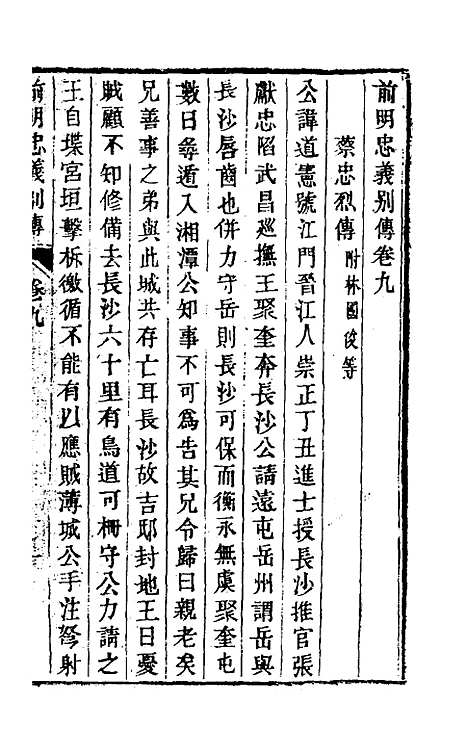 前明忠義別傳卷九
蔡忠烈傳附林國俊等
公諱道憲號江門晉江人崇正丁丑進士授長沙推官張
獻忠陷武昌巡撫王聚奎奔長沙公請遠屯岳州謂岳與
長沙唇齒也併力守岳則長沙可保而衡永無虞聚奎屯
數日尋遁入湘潭公知事不可爲告其兄令歸曰親老矣
兄善事之弟與此城共存亡耳長沙故吉邸封地王日憂
賊顧不知修備去長沙六十里有鳥道可柵守公力請之
王自堞宮垣擊柝徼循不能有以應賊薄城公手注弩射
前明忠義別傳 卷九